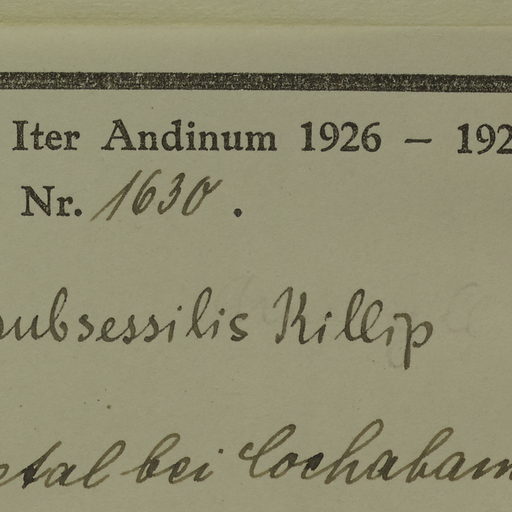 Iter Andinum 1926 – 192
Nr. 1630.
subsessilis Killip
tal bei Cochabam